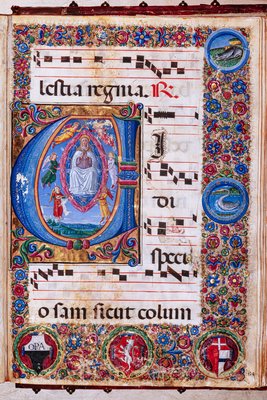 lestia regina. R
I
di
speci
o sam sicut colum
OPA